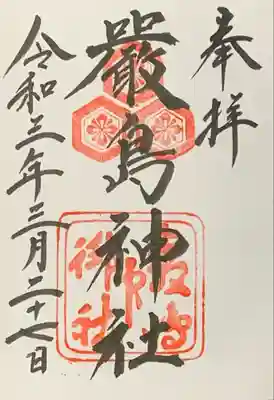 奉拝
嚴島神社
令和三年三月二十七日